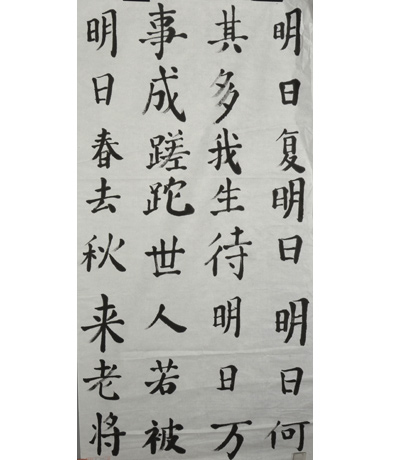 明日复明日明日何
其多我生待明日万
事成蹉跎世人若被
明日春去秋来老将